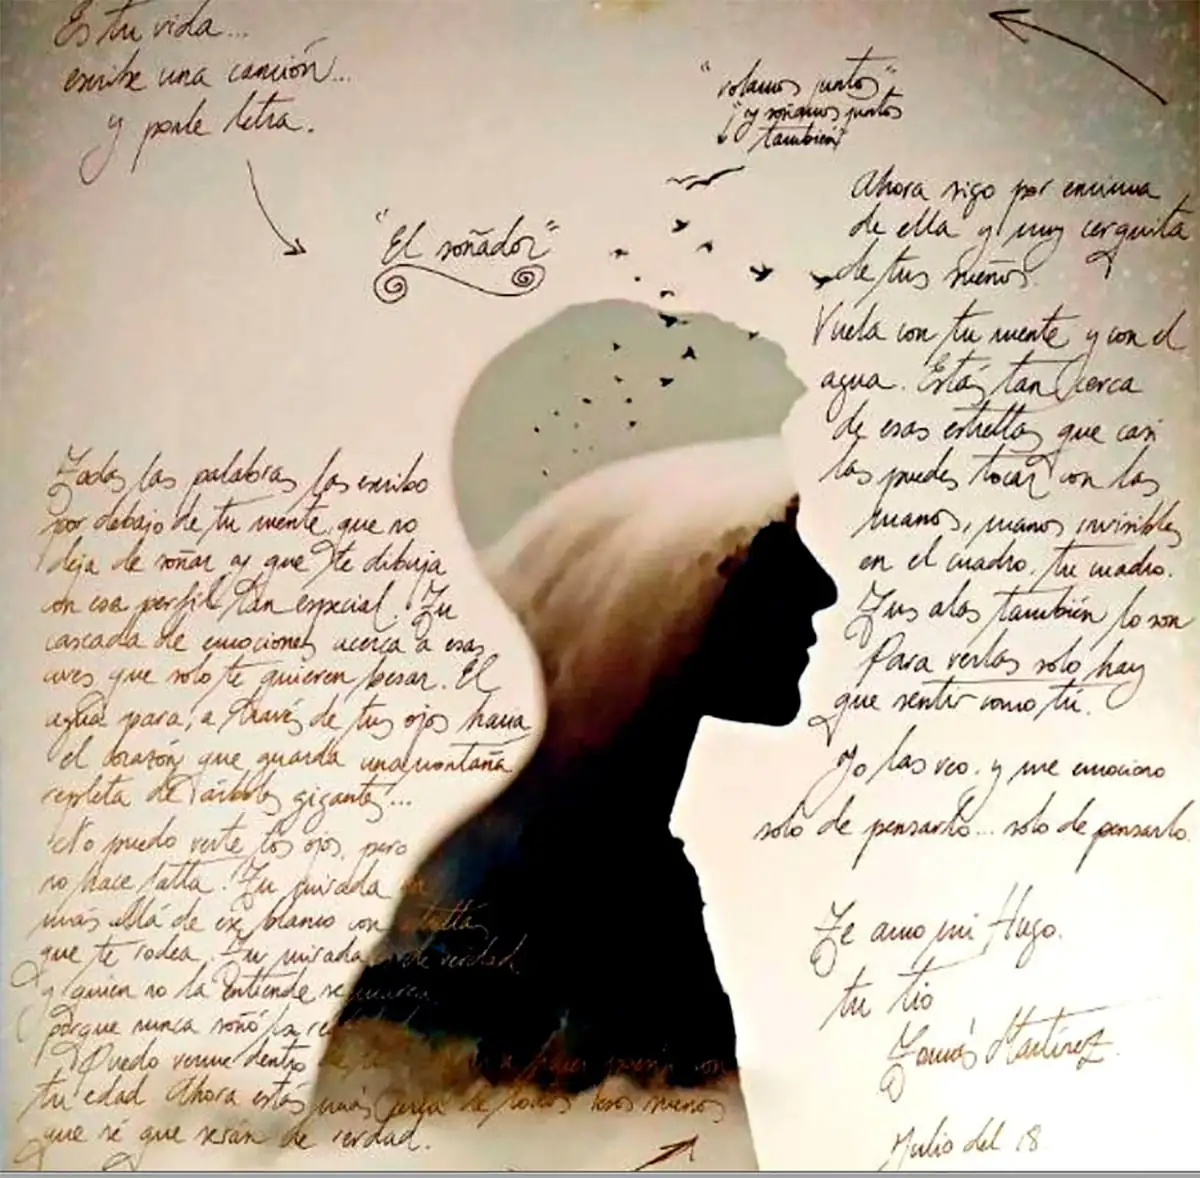 Es tu vida...
escribe una canción...
y ponle letra.
"El soñador"
"volamos juntos"
"y soñamos juntos
también"
Todas las palabras las escribo
por debajo de tu mente, que no
deja de soñar y que te dibuja
con ese perfil tan especial. Tu
cascada de emociones acerca a esas
aves que solo te quieren besar. El
agua para, a través de tus ojos hacia
el corazón que guarda una montaña
repleta de árboles gigantes...
No puedo verte los ojos, pero
no hace falta. Tu mirada
más allá de ese blanco con estrellas
que te rodea. Tu mirada es de verdad
y quien no la entiende se marea
porque nunca soñó la
Puedo verme dentro de
tu edad. Ahora estás más cerca de todos esos sueños
que sé que serán de verdad.
Ahora sigo por encima
de ella y muy cerquita
de tus sueños.
Vuela con tu mente y con el
agua. Estás tan cerca
de esas estrellas que casi
las puedes tocar con las
manos, manos invisibles
en el cuadro, tu cuadro.
Tus alas también lo son
Para verlas solo hay
que sentir como tú.
Yo las veo, y me emociono
solo de pensarlo... solo de pensarlo.
Te amo mi Hugo.
tu tio
Tomás Martínez.
Julio del 18